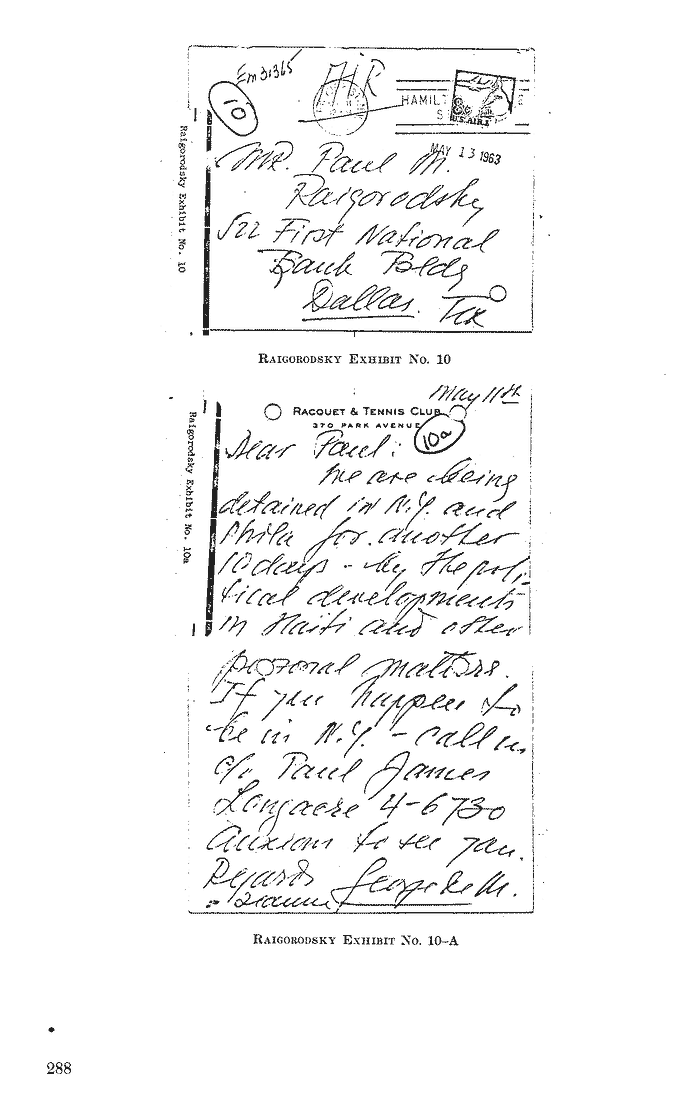 Em 31365
AIR
10
HAMILT
8¢
U.S. AIR
MAY 13 1963
Mr. Paul M.
Raigorodsky
522 First National
Bank Bldg
Dallas. Tex
Raigorodsky Exhibit No. 10
RAIGORODSKY EXHIBIT NO. 10
May 11th
RACQUET & TENNIS CLUB
370 PARK AVENUE
10a
Dear Paul:
We are being
detained in N.Y. and
Phila for another
10 days - by the poli-
tical developments
in Haiti and other
personal matters.
If you happen to
be in N.Y. - call us
c/o Paul James
Longacre 4-6730
Anxious to see you.
Regards George de M.
Jeanne
Raigorodsky Exhibit No. 10a
RAIGORODSKY EXHIBIT NO. 10-A
288